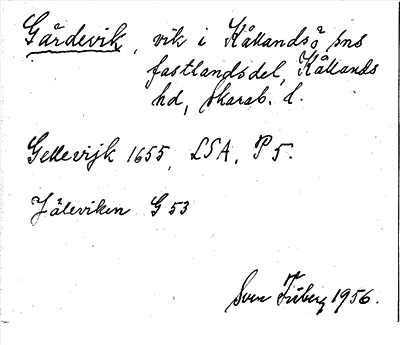 Gårdevik, vik i Kållandsö sns
fastlandsdel, Kållands
hd, Skarab. l.
Gellevijk 1655, LSA, P 5.
Jäleviken G 53
Sven Friberg 1956.